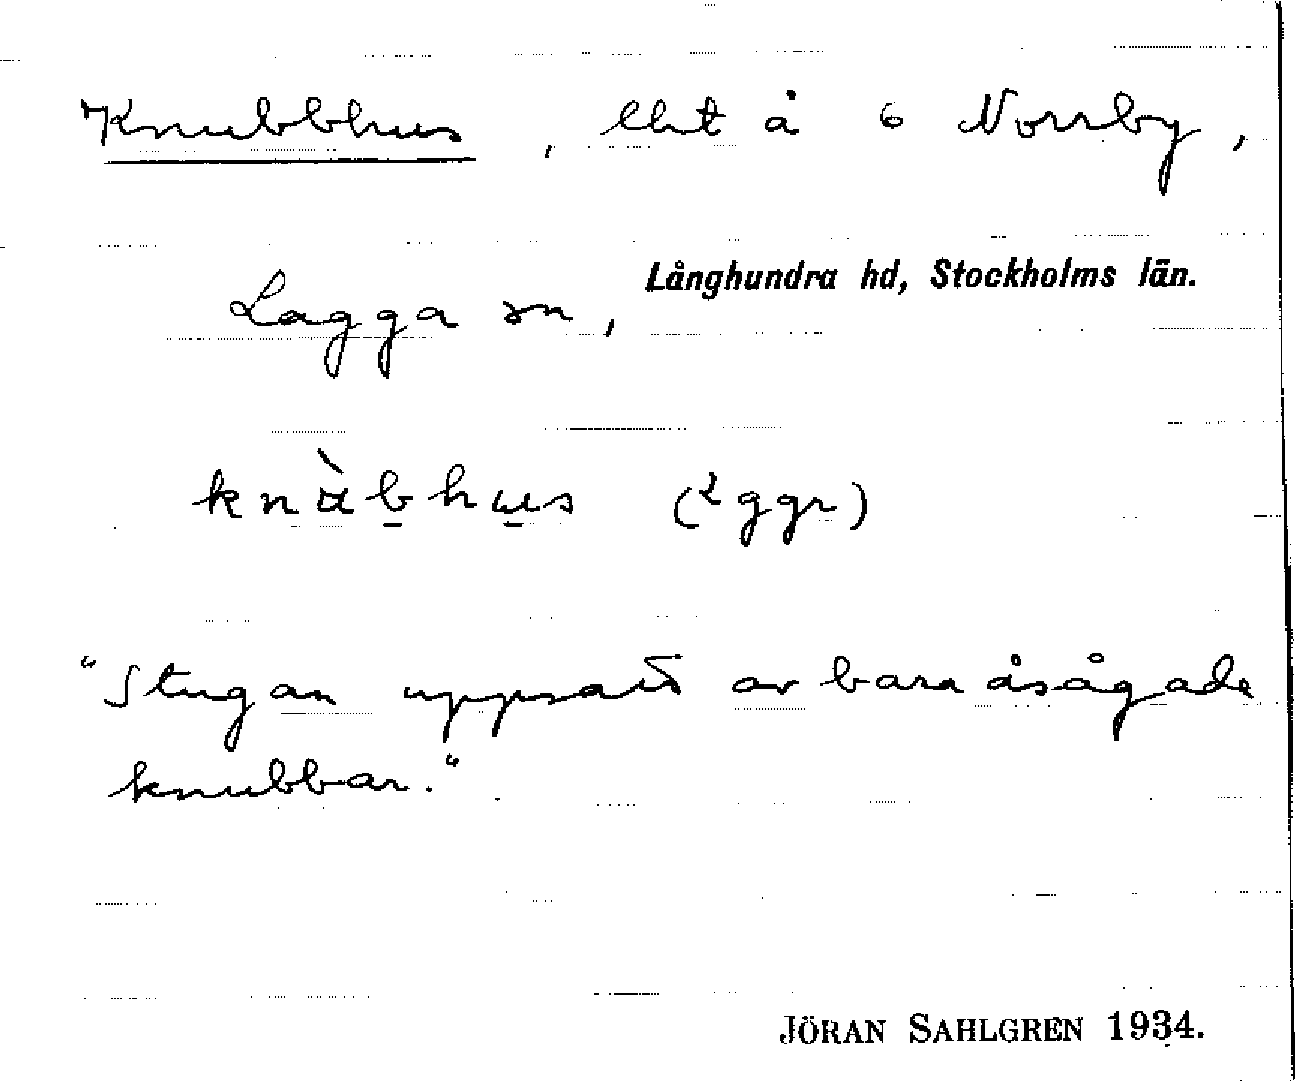 Knubbhus, lht å 6 Norrby,
Långhundra hd, Stockholms län.
Lagga sn,
knùbhus (2 ggr)
"Stugan uppsatt av bara åsågade
knubbar."
JÖRAN SAHLGREN 1934.